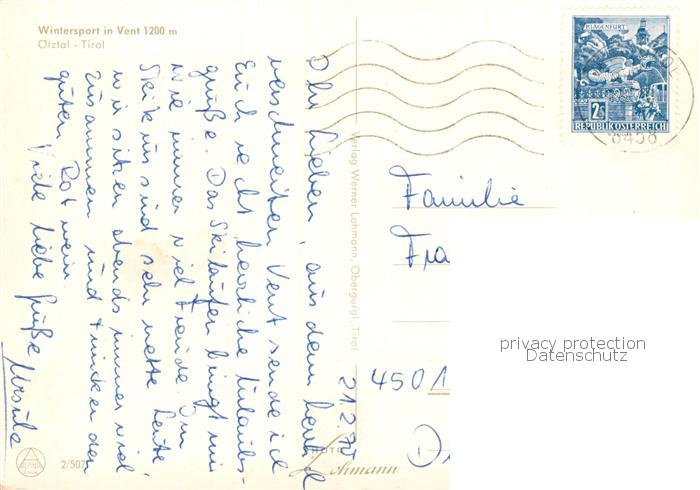 Wintersport in Vent 1200 m
Ötztal - Tirol
Ihr Lieben, aus dem herrlich
verschneiten Vent sende ich
Euch recht herzliche Urlaubs-
grüße. Das Skilaufen bringt mir
wie immer viel Freude. Im
Skikurs sind sehr nette Leute
wir sitzen abends immer viel
zusammen und trinken den
guten Rotwein.
Viele liebe Grüße
Ursula
21.2.70
Verlag Werner Lohmann, Obergurgl, Tirol
KLAGENFURT
2S
REPUBLIK ÖSTERREICH
6458
Familie
Fra
4501
D
privacy protection
Datenschutz
PHOTO
Lohmann
2/507